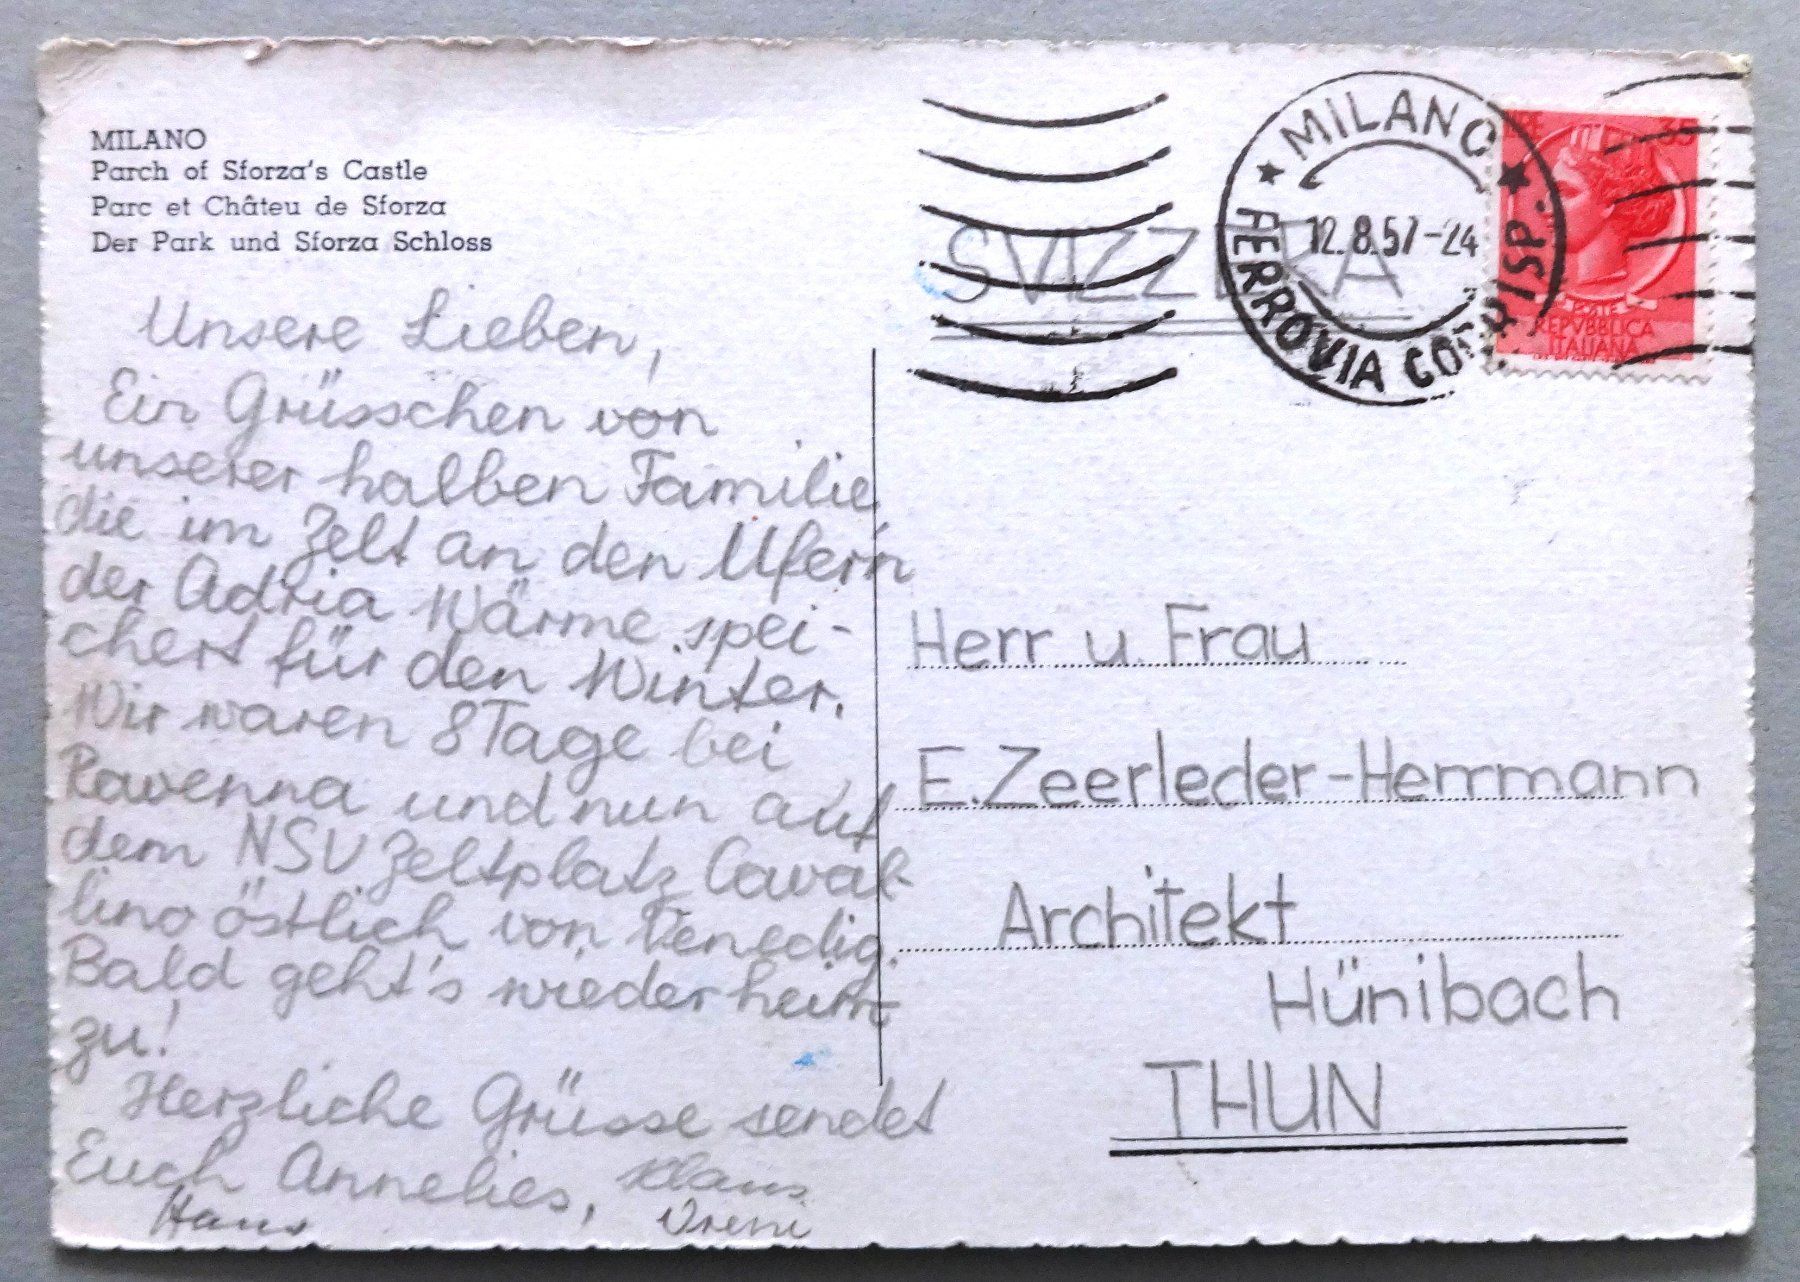 MILANO
Parch of Sforza's Castle
Parc et Châteu de Sforza
Der Park und Sforza Schloss
Unsere Lieben,
Ein Grüsschen von
unserer halben Familie
die im Zelt an den Ufern
der Adria Wärme spei-
chert für den Winter.
Wir waren 8 Tage bei
Ravenna und nun auf
dem NSV Zeltplatz Caval-
lino östlich von Venedig.
Bald geht's wieder heim-
zu!
Herzliche Grüsse sendet
Euch Annelies, Klaus
Hans Vreni
MILANO
FERROVIA CORRISP.
12.8.57-24
35
POSTE
REPVBBLICA
ITALIANA
SVIZZERA
Herr u. Frau
E. Zeerleder-Herrmann
Architekt
Hünibach
THUN